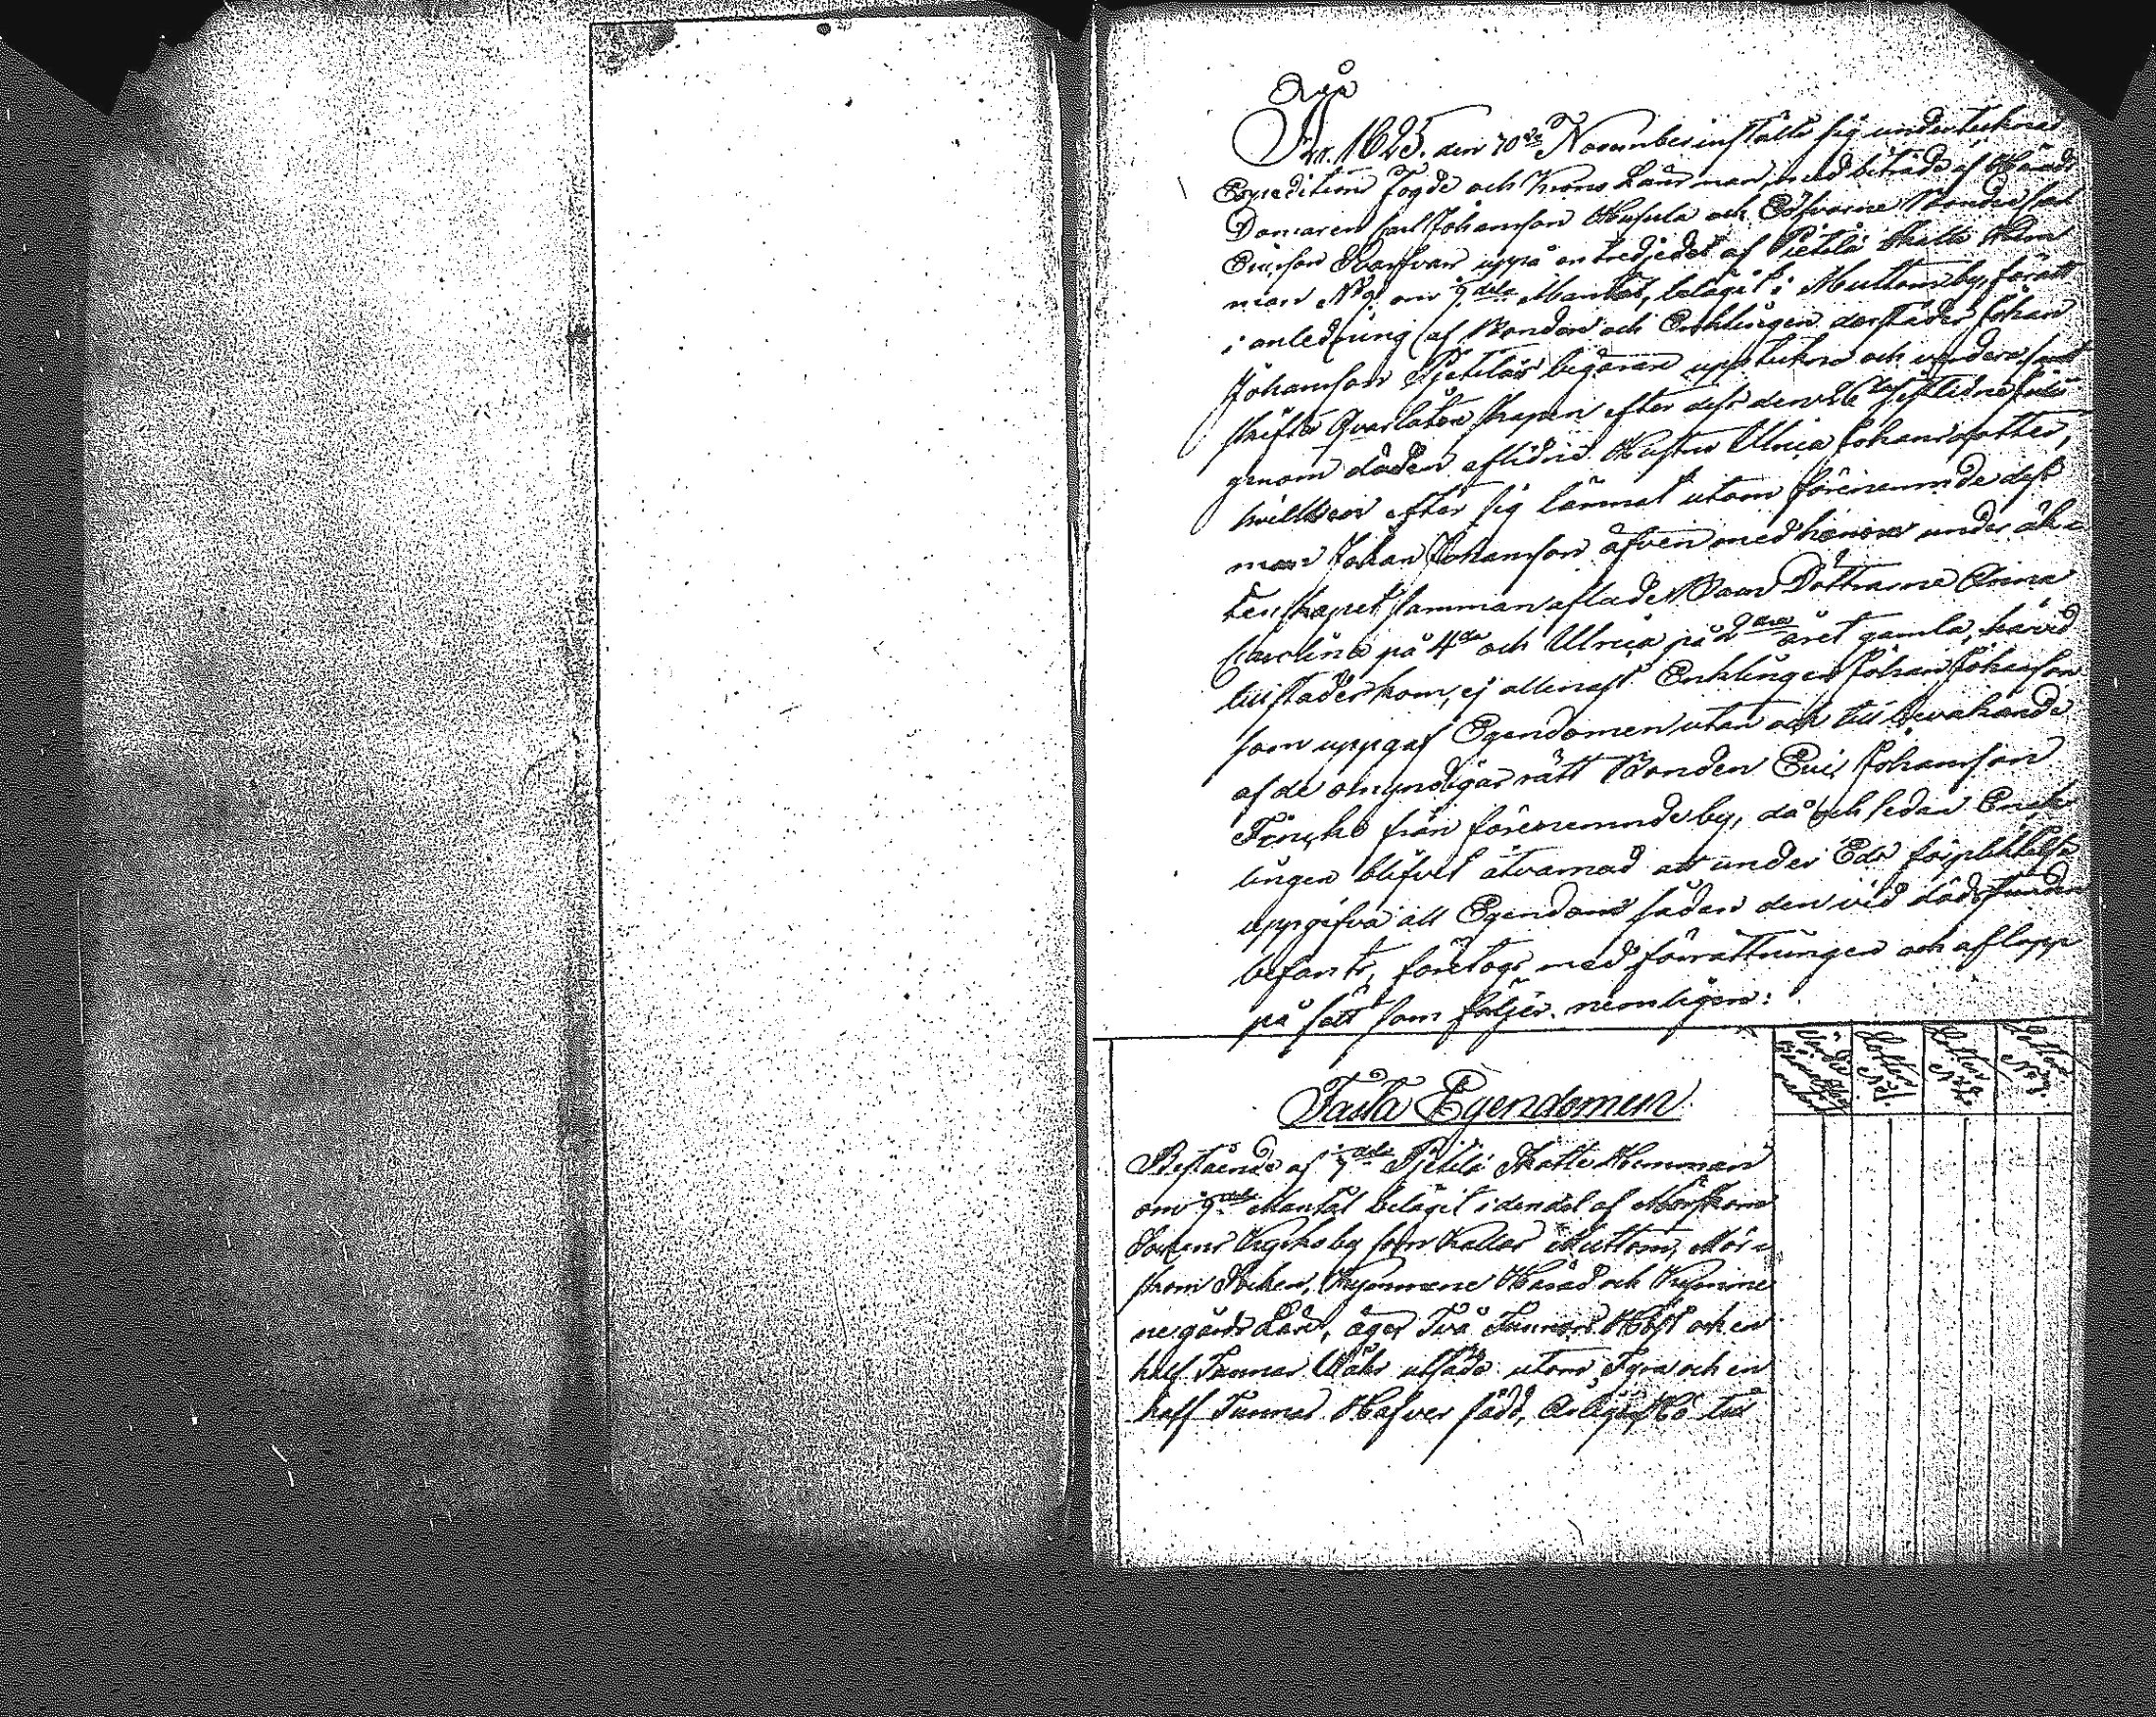 År 1825. den 10de November instälte sig undertecknad
Expeditions Fogde och Krono Länsman, med biträde af Härads
Domaren Carl Johansson Husula och Edsvorne Bonden
Ericsson uppå en tredjedel af Pietilä Skatte Hem
man No 9. om Mantal, belägit i Muttom by, för att
i anledning af Bonden och Enklingen derstädes Johan
Johansson Pjetiläs begäran uppteckna och värdera samt
skifta Qvarlåtenskapen efter dess den 26
genom döden aflidne Hustru Ulrica Johansdotter,
hvilken efter sig lämnat utom förenemnde dess
man Johan Johansson äfven med honom under äk=
tenskapet samman aflade Barn Döttrarne Anna
Carolina på 4de och Ulrica på 2dra året gamla, härvid
tillstädes kom, ej allenast Enklingen Johan Johansson
som uppgaf Egendomen utan och till bevakande
af de omyndigas rätt Bonden Eric Johansson
från förenemnde by, då och sedan Enk=
lingen blifvit åtvarnad att under Eds förplicktelse
uppgifva all Egendom sådan den vid dödsstunden
befants, företogs med förrättningen och aflopp
på sätt som följer nemligen:
Lotten No 1.
Lotten No 2.
Lotten No 3.
Fasta Egendomen
Bestående af Pjetilä Skatte Hemman
om Mantal belägit i den del af Mörskoms
Sockens by som kallas Muttom, Mör=
skom Socken, Kymmene Härad och Kymme
negårds Län, äger Två Tunnors Höst och en
half Tunnas Wårs utsäde utom Fyra och en
half Tunnas Hafver säd, Årligen Hö till